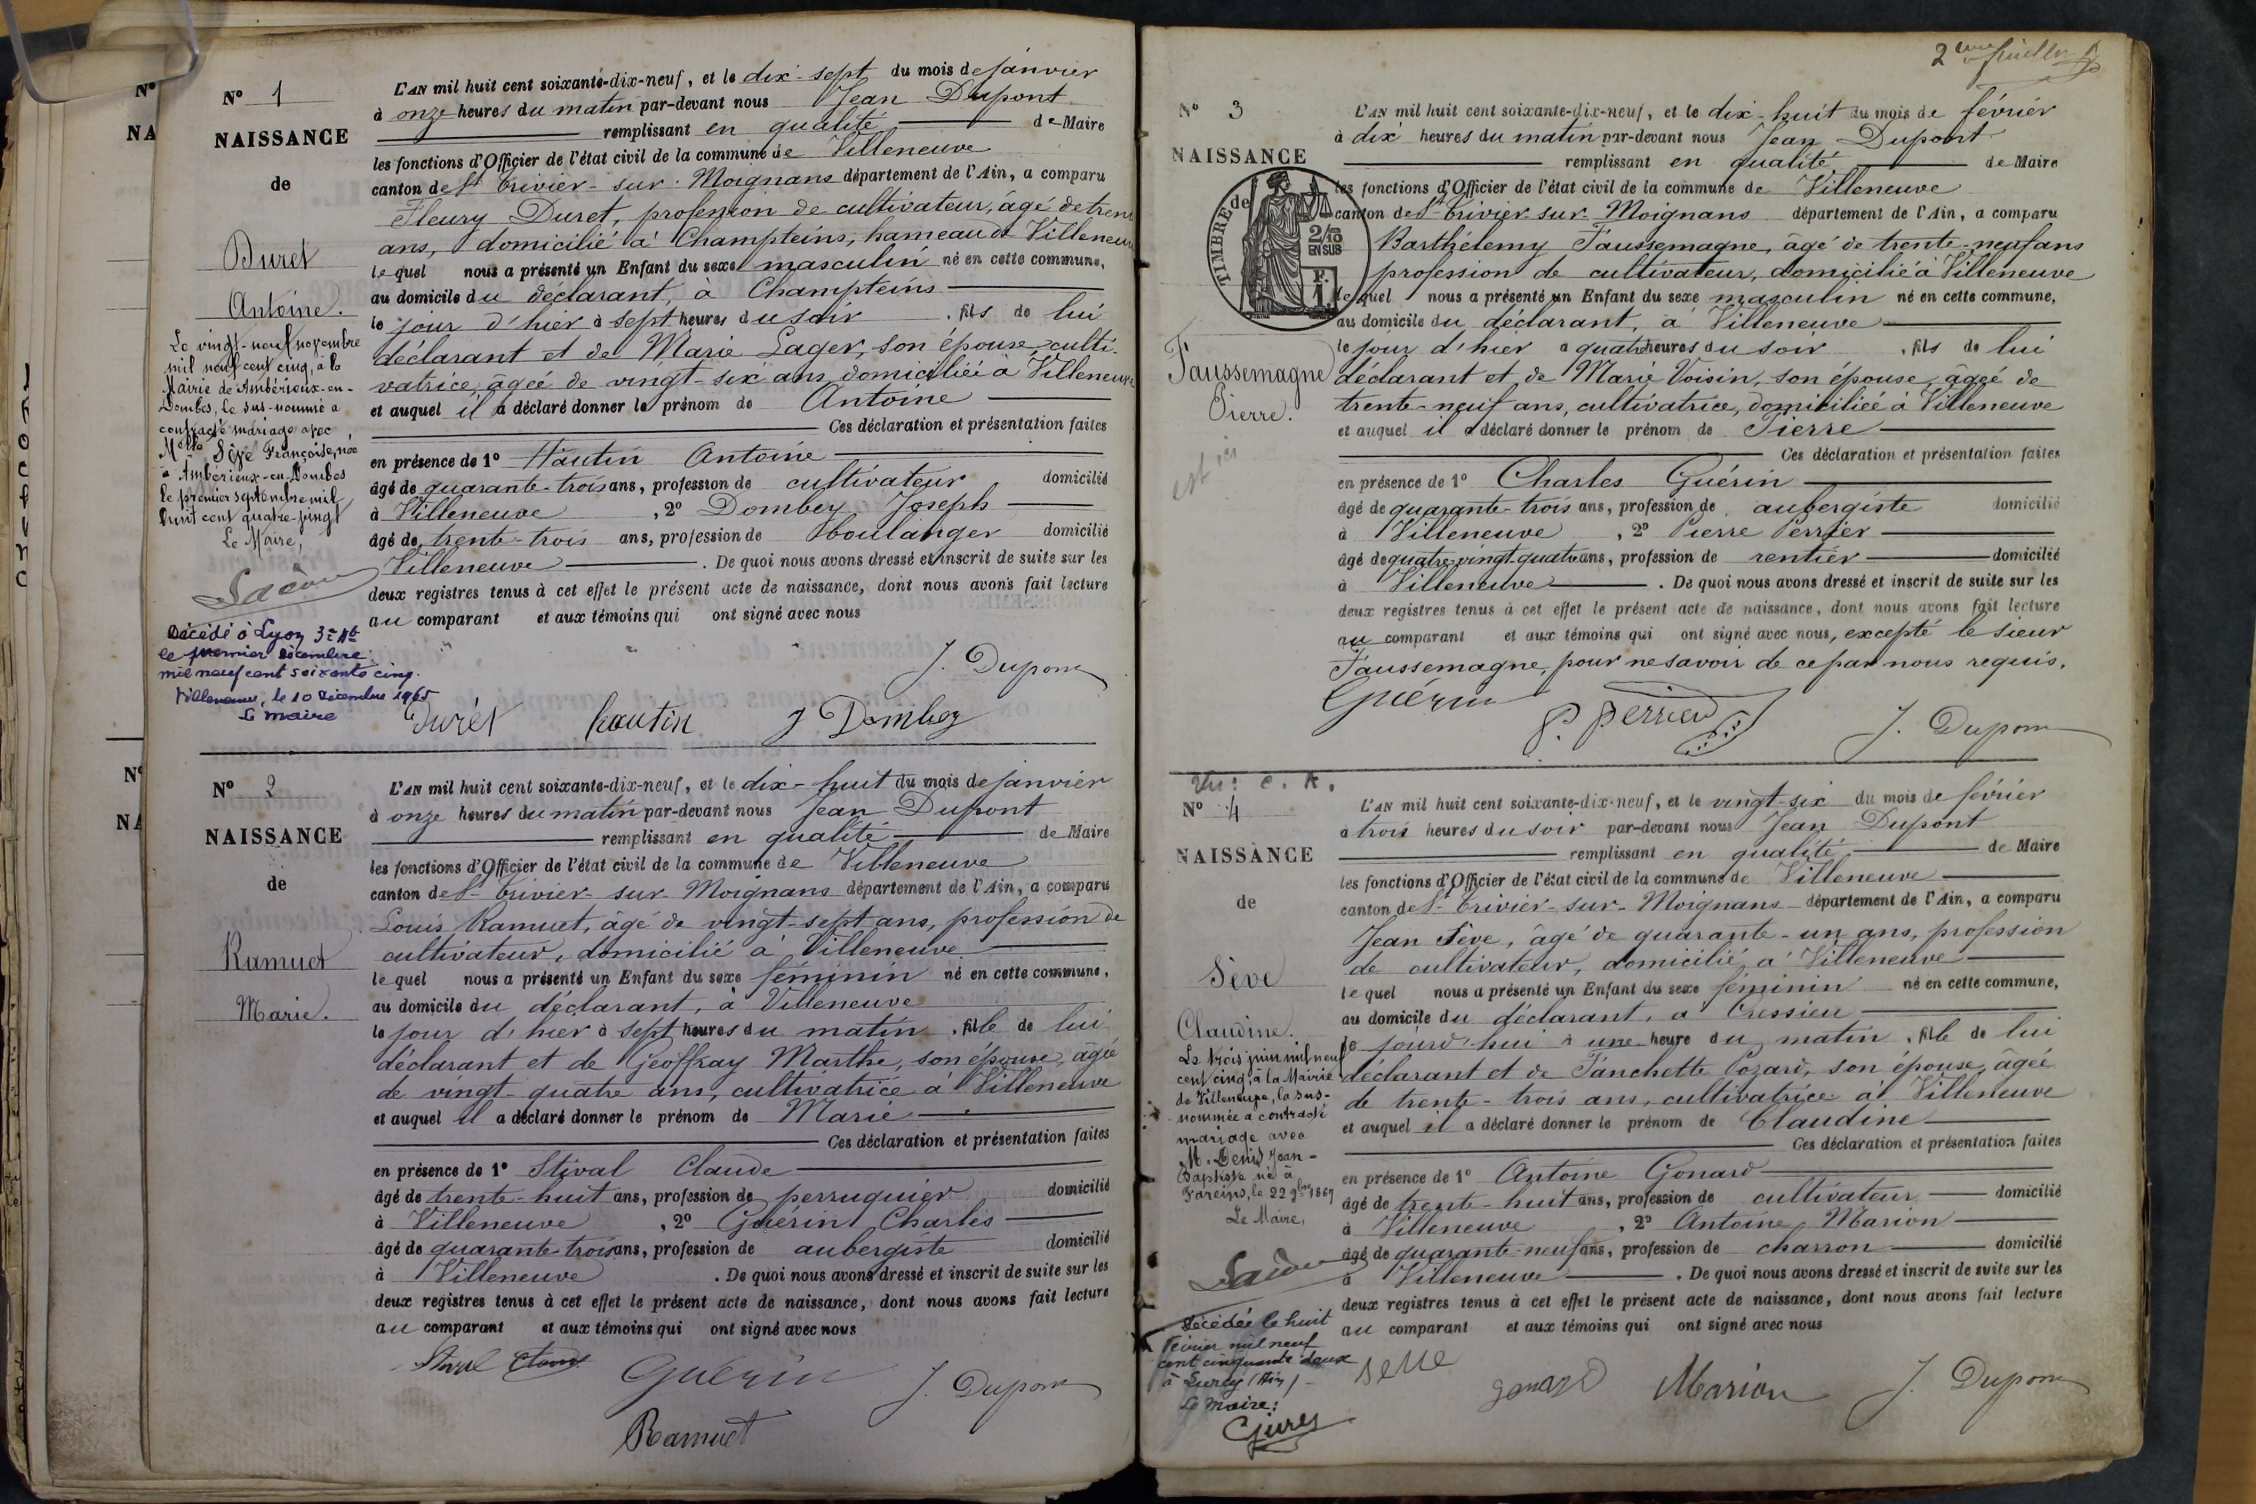 N° 1
NAISSANCE
de
Duret
Antoine.
Le vingt-neuf novembre
mil neuf cent cinq, à la
Mairie de Ambérieux-en-
Dombes, le sus-nommé a
contracté mariage avec
Melle Sève Françoise, née
à Ambérieux-en-Dombes
le premier septembre mil
huit cent quatre-vingt
Le Maire,
Décédé à Lyon 3e Art
le premier décembre
mil neuf cent soixante cinq.
Villeneuve, le 10 décembre 1965
Le maire
L'AN mil huit cent soixante-dix-neuf, et le dix-sept du mois de janvier
à onze heures du matin par-devant nous Jean Dupont
remplissant en qualité de Maire
les fonctions d'Officier de l'état civil de la commune de Villeneuve
canton de St Trivier-sur-Moignans département de l'Ain, a comparu
Fleury Duret, profession de cultivateur, âgé de trente
ans, domicilié à Champteins, hameau de Villeneuve
lequel nous a présenté un Enfant du sexe masculin né en cette commune,
au domicile du déclarant, à Champteins
le jour d'hier à sept heures du soir, fils de lui
déclarant et de Marie Lager, son épouse, culti-
vatrice, âgée de vingt-six ans domiciliée à Villeneuve
et auquel il a déclaré donner le prénom de Antoine
Ces déclaration et présentation faites
en présence de 1° Hautin Antoine
âgé de quarante-trois ans, profession de cultivateur domicilié
à Villeneuve, 2° Dombey Joseph
âgé de trente-trois ans, profession de boulanger domicilié
Villeneuve. De quoi nous avons dressé et inscrit de suite sur les
deux registres tenus à cet effet le présent acte de naissance, dont nous avons fait lecture
au comparant et aux témoins qui ont signé avec nous
J. Dupont
Duret hautin J Dombey
N° 2
NAISSANCE
de
Ramuet
Marie.
L'AN mil huit cent soixante-dix-neuf, et le dix-huit du mois de janvier
à onze heures du matin par-devant nous Jean Dupont
remplissant en qualité de Maire
les fonctions d'Officier de l'état civil de la commune de Villeneuve
canton de St Trivier-sur-Moignans département de l'Ain, a comparu
Louis Ramuet, âgé de vingt-sept ans, profession de
cultivateur, domicilié à Villeneuve
lequel nous a présenté un Enfant du sexe féminin né en cette commune,
au domicile du déclarant, à Villeneuve
le jour d'hier à sept heures du matin, fille de lui
déclarant et de Geoffray Marthe, son épouse, âgée
de vingt-quatre ans, cultivatrice à Villeneuve
et auquel il a déclaré donner le prénom de Marie
Ces déclaration et présentation faites
en présence de 1° Stival Claude
âgé de trente-huit ans, profession de perruquier domicilié
à Villeneuve, 2° Guérin Charles
âgé de quarante-trois ans, profession de aubergiste domicilié
à Villeneuve. De quoi nous avons dressé et inscrit de suite sur les
deux registres tenus à cet effet le présent acte de naissance, dont nous avons fait lecture
au comparant et aux témoins qui ont signé avec nous
Stival Claude Guérin J. Dupont
Ramuet
2eme feuillet
N° 3
NAISSANCE
de
TIMBRE
2/10
EN SUS
F.
1
Faussemagne
Pierre.
L'AN mil huit cent soixante-dix-neuf, et le dix-huit du mois de février
à dix heures du matin par-devant nous Jean Dupont
remplissant en qualité de Maire
les fonctions d'Officier de l'état civil de la commune de Villeneuve
canton de St Trivier-sur-Moignans département de l'Ain, a comparu
Barthélemy Faussemagne, âgé de trente-neuf ans
profession de cultivateur, domicilié à Villeneuve
lequel nous a présenté un Enfant du sexe masculin né en cette commune,
au domicile du déclarant, à Villeneuve
le jour d'hier à quatre heures du soir, fils de lui
déclarant et de Marie Voisin, son épouse, âgée de
trente-neuf ans, cultivatrice, domiciliée à Villeneuve
et auquel il a déclaré donner le prénom de Pierre
Ces déclaration et présentation faites
en présence de 1° Charles Guérin
âgé de quarante-trois ans, profession de aubergiste domicilié
à Villeneuve, 2° Pierre Perrier
âgé de quatre-vingt-quatre ans, profession de rentier domicilié
à Villeneuve. De quoi nous avons dressé et inscrit de suite sur les
deux registres tenus à cet effet le présent acte de naissance, dont nous avons fait lecture
au comparant et aux témoins qui ont signé avec nous, excepté le sieur
Faussemagne, pour ne savoir de ce par nous requis.
Guérin P. Perrier J. Dupont
N° 4
NAISSANCE
de
Sève
Claudine.
Le trois juin mil neuf
cent cinq, à la Mairie
de Villeneuve, la sus-
nommée a contracté
mariage avec
M. Denis Jean-
Baptiste né à
Fareins, le 22 9bre 1867
Le Maire,
Décédée le huit
février mil neuf
cent cinquante deux
à Lurcy (Ain)
Le Maire:
L'AN mil huit cent soixante-dix-neuf, et le vingt-six du mois de février
à trois heures du soir par-devant nous Jean Dupont
remplissant en qualité de Maire
les fonctions d'Officier de l'état civil de la commune de Villeneuve
canton de St Trivier-sur-Moignans département de l'Ain, a comparu
Jean Sève, âgé de quarante-un ans, profession
de cultivateur, domicilié à Villeneuve
lequel nous a présenté un Enfant du sexe féminin né en cette commune,
au domicile du déclarant, à Cressieu
le jourd'hui à une heure du matin, fille de lui
déclarant et de Fanchette Pozard, son épouse, âgée
de trente-trois ans, cultivatrice à Villeneuve
et auquel il a déclaré donner le prénom de Claudine
Ces déclaration et présentation faites
en présence de 1° Antoine Gonard
âgé de trente-huit ans, profession de cultivateur domicilié
à Villeneuve, 2° Antoine Marion
âgé de quarante-neuf ans, profession de charron domicilié
à Villeneuve. De quoi nous avons dressé et inscrit de suite sur les
deux registres tenus à cet effet le présent acte de naissance, dont nous avons fait lecture
au comparant et aux témoins qui ont signé avec nous
seve gonard Marion J. Dupont